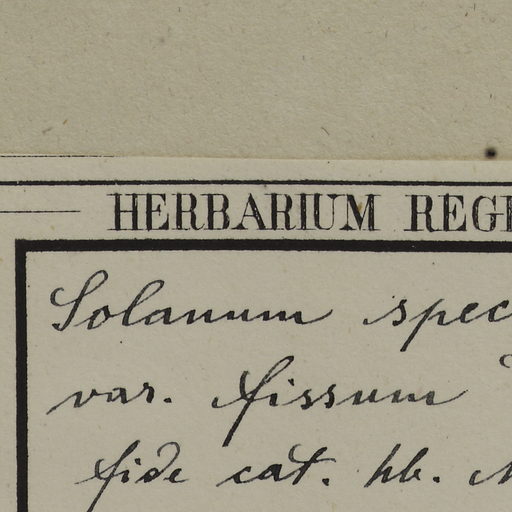 HERBARIUM REGI
Solanum spec
var. fissum
fide cat. hb.